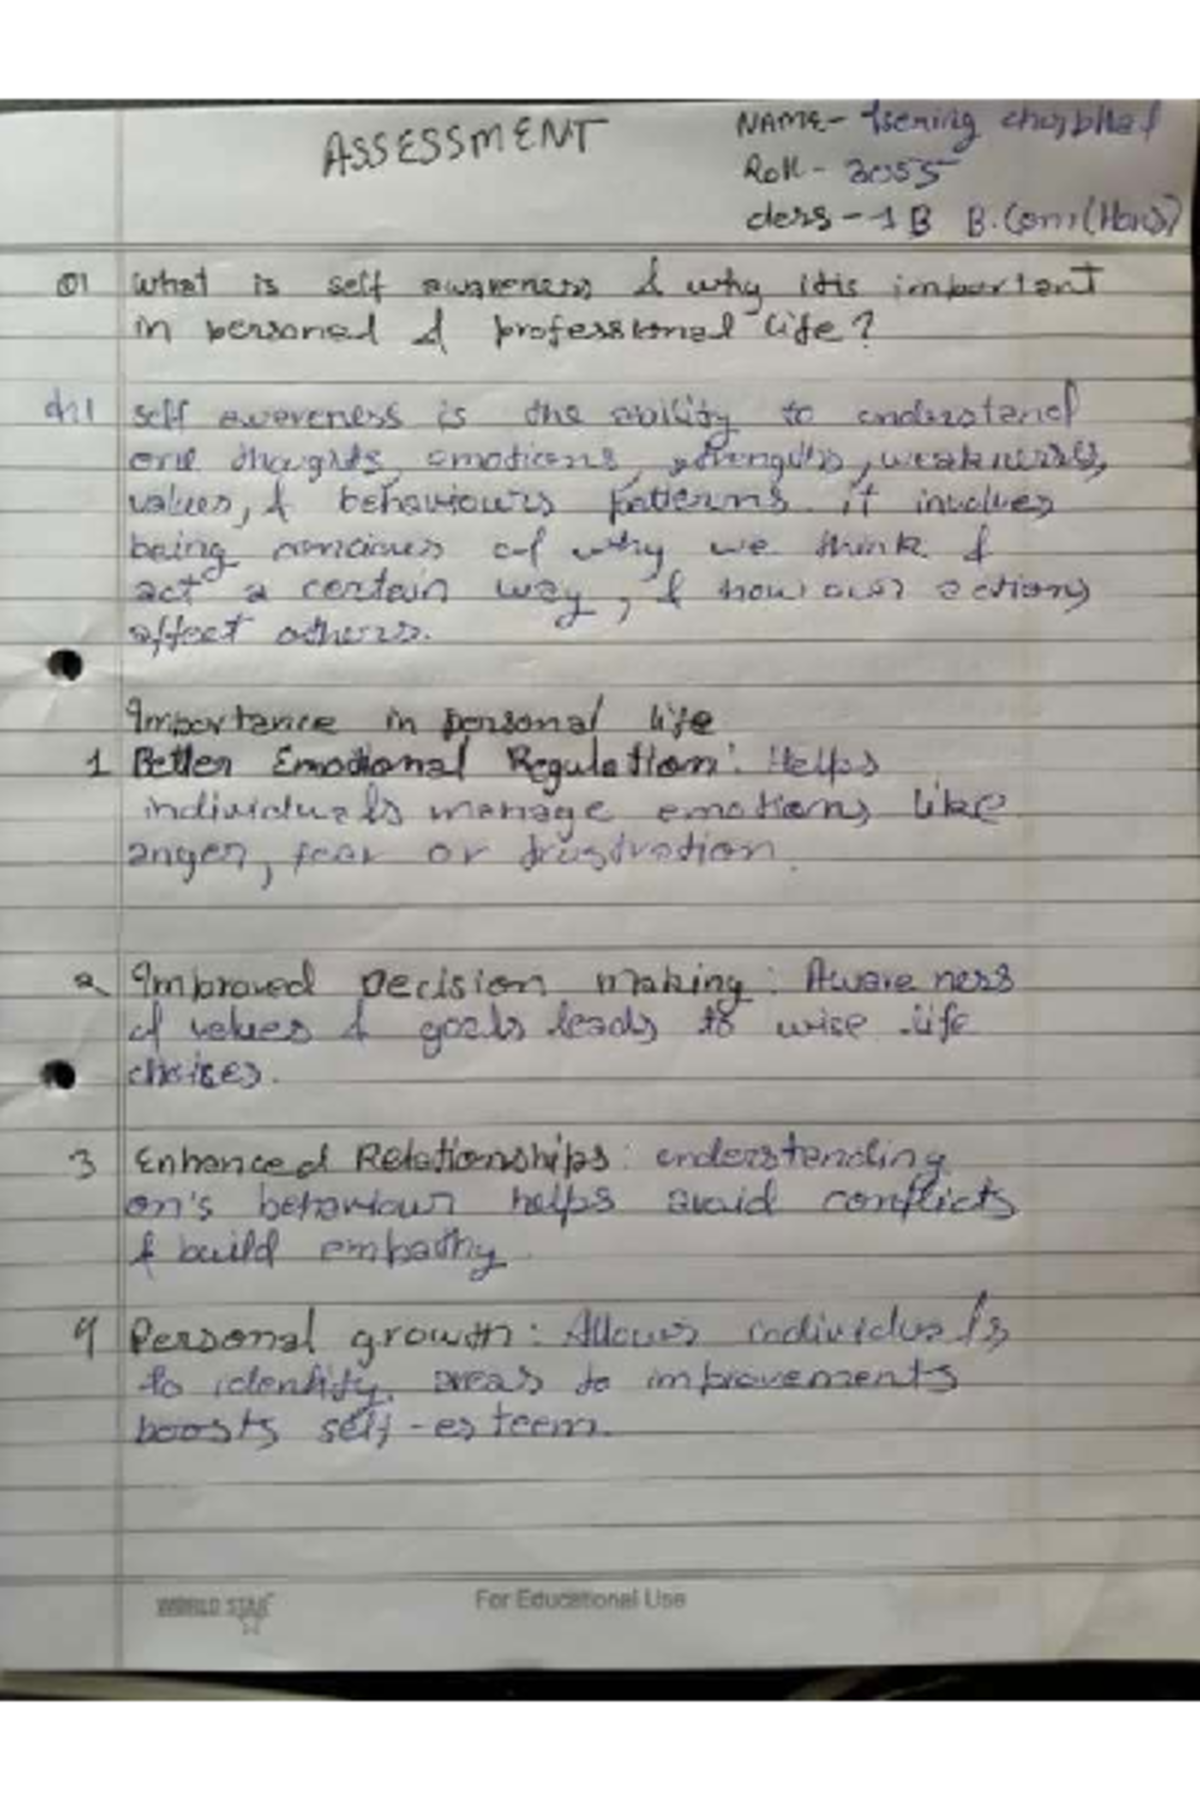 ASSESSMENT
NAME- Tsering
Roll - 2055
class - 1 B B.Com (Hons)
Q1 What is self awareness & why itis important
in personal & professional life?
An1 self awareness is the ability to understand
one thoughts, emotions, strengths, weaknesses,
values, & behaviours patterns. it involves
being concious of why we think &
act a certain way, & how our actions
affect others.
Importance in personal life
1 Better Emotional Regulation: Helps
individuals manage emotions like
anger, fear or frustration.
2 Improved Decision Making: Awareness
of values & goals leads to wise life
choices.
3 Enhanced Relationships: understanding
on's behaviour helps avoid conflicts
& build empathy.
4 Personal growth: Allows individuals
to identify areas to improvements
boosts self-esteem.
WORLD STAR
For Educational Use